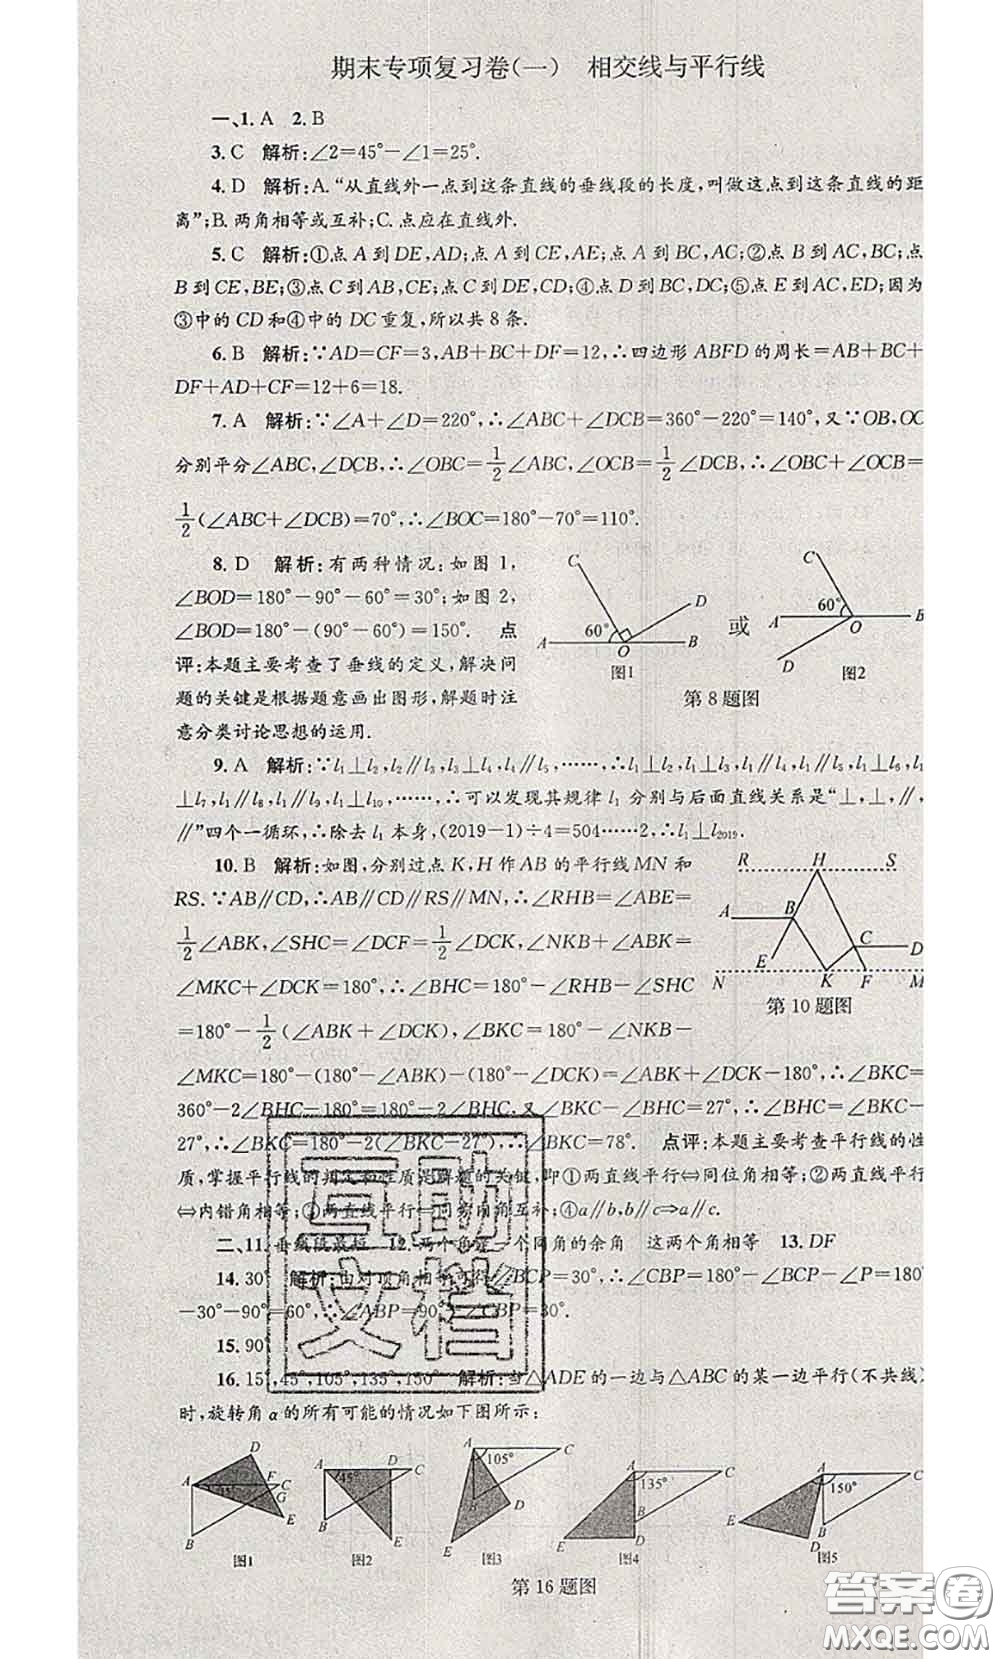 期末专项复习卷(一) 相交线与平行线
一、1. A 2. B
3. C 解析:∠2=45°-∠1=25°.
4. D 解析:A.“从直线外一点到这条直线的垂线段的长度,叫做这点到这条直线的距
离”;B.两角相等或互补;C.点应在直线外.
5. C 解析:①点A到DE,AD;点A到CE,AE;点A到BC,AC;②点B到AC,BC;点
B到CE,BE;③点C到AB,CE;点C到DE,CD;④点D到BC,DC;⑤点E到AC,ED;因为
③中的CD和④中的DC重复,所以共8条.
6. B 解析:∵AD=CF=3,AB+BC+DF=12,∴四边形ABFD的周长=AB+BC+
DF+AD+CF=12+6=18.
7. A 解析:∵∠A+∠D=220°,∴∠ABC+∠DCB=360°-220°=140°,又∵OB,OC
分别平分∠ABC,∠DCB,∴∠OBC=1/2∠ABC,∠OCB=1/2∠DCB,∴∠OBC+∠OCB=
1/2(∠ABC+∠DCB)=70°,∴∠BOC=180°-70°=110°.
8. D 解析:有两种情况:如图1,
∠BOD=180°-90°-60°=30°;如图2,
∠BOD=180°-(90°-60°)=150°. 点
评:本题主要考查了垂线的定义,解决问
题的关键是根据题意画出图形,解题时注
意分类讨论思想的运用.
C D 60° A O B 图1
或
C 60° A O B D 图2
第8题图
9. A 解析:∵l₁⊥l₂,l₂∥l₃,l₃⊥l₄,l₄∥l₅,……,∴l₁⊥l₂,l₁⊥l₃,l₁∥l₄,l₁∥l₅,l₁⊥l₆,l₁
⊥l₇,l₁∥l₈,l₁∥l₉,l₁⊥l₁₀,……,∴可以发现其规律l₁分别与后面直线关系是“⊥,⊥,∥,
∥”四个一循环,∴除去l₁本身,(2019-1)÷4=504……2,∴l₁⊥l₂₀₁₉.
10. B 解析:如图,分别过点K,H作AB的平行线MN和
RS.∵AB∥CD,∴AB∥CD∥RS∥MN,∴∠RHB=∠ABE=
1/2∠ABK,∠SHC=∠DCF=1/2∠DCK,∠NKB+∠ABK=
∠MKC+∠DCK=180°,∴∠BHC=180°-∠RHB-∠SHC
=180°-1/2(∠ABK+∠DCK),∠BKC=180°-∠NKB-
∠MKC=180°-(180°-∠ABK)-(180°-∠DCK)=∠ABK+∠DCK-180°,∴∠BKC=
360°-2∠BHC-180°=180°-2∠BHC.又∠BKC-∠BHC=27°,∴∠BHC=∠BKC-
27°,∴∠BKC=180°-2(∠BKC-27°),∴∠BKC=78°. 点评:本题主要考查平行线的性
质,掌握平行线的判定和性质是解题的关键,即①两直线平行⇔同位角相等;②两直线平行
⇔内错角相等;③两直线平行⇔同旁内角互补;④a∥b,b∥c⇒a∥c.
R H S A B C D E N K F M
第10题图
二、11.垂线段最短 12.两个角是一个同角的余角 这两个角相等 13. DF
14. 30° 解析:由对顶角相等可得∠BCP=30°,∴∠CBP=180°-∠BCP-∠P=180°
-30°-90°=60°,∴∠ABP=90°-∠CBP=30°.
15. 90°
16. 15°,45°,105°,135°,150° 解析:当△ADE的一边与△ABC的某一边平行(不共线)
时,旋转角α的所有可能的情况如下图所示:
A D F C G E B 图1
A D C 45° B E 图2
A C 105° B D E 图3
A C 135° B E D 图4
A C 150° E D B 图5
第16题图
互助
文档
答案卷
MXQE.COM